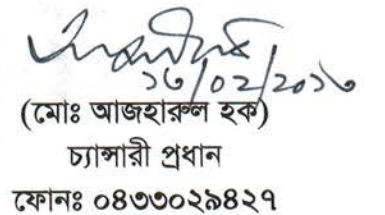 ১৬/০২/২০১৬
(মোঃ আজহারুল হক)
চ্যান্সারী প্রধান
ফোনঃ ০৪৩৩০২৯৪২৭